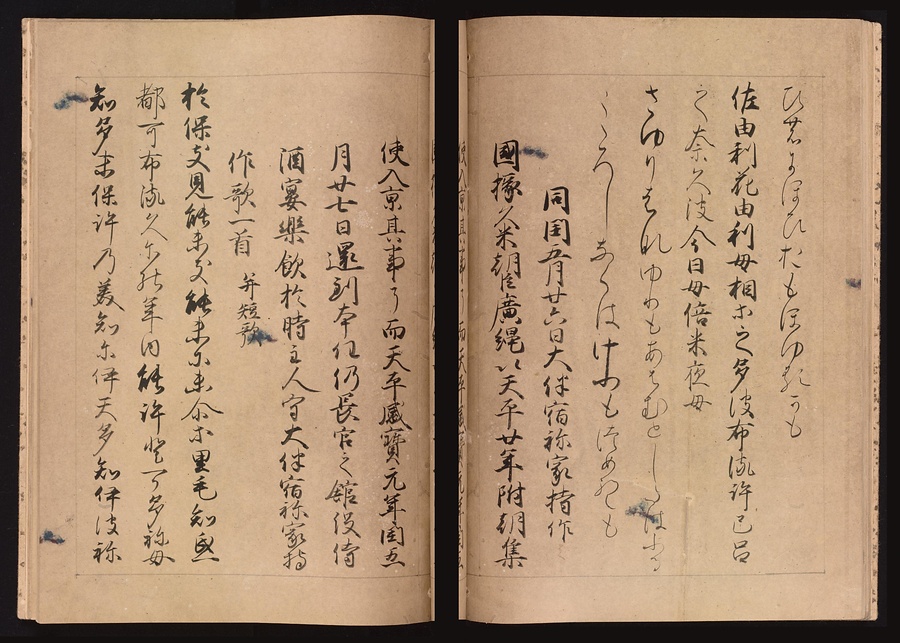 ひのにほひおもほゆるかも
佐由利花由利母相等之多波布流許己呂
之奈久波今日母倍米夜母
さゆりはなゆりもあはむとしたはふる
こゝろしなくはけふもへめやも
同閏五月廿六日大伴宿祢家持作
國掾久米朝臣廣縄以天平廿年附朝集
使入京其事了而天平感寶元年閏五
月廿七日還到本任仍長官之舘設詩
酒宴樂飲於時主人守大伴宿祢家持
作歌一首 并短歌
於保支見能末支能末尓末尓等里毛知氐
都可布流久尓能年内能許登可多祢母
知多末保許乃美知尓伊天多知伊波祢